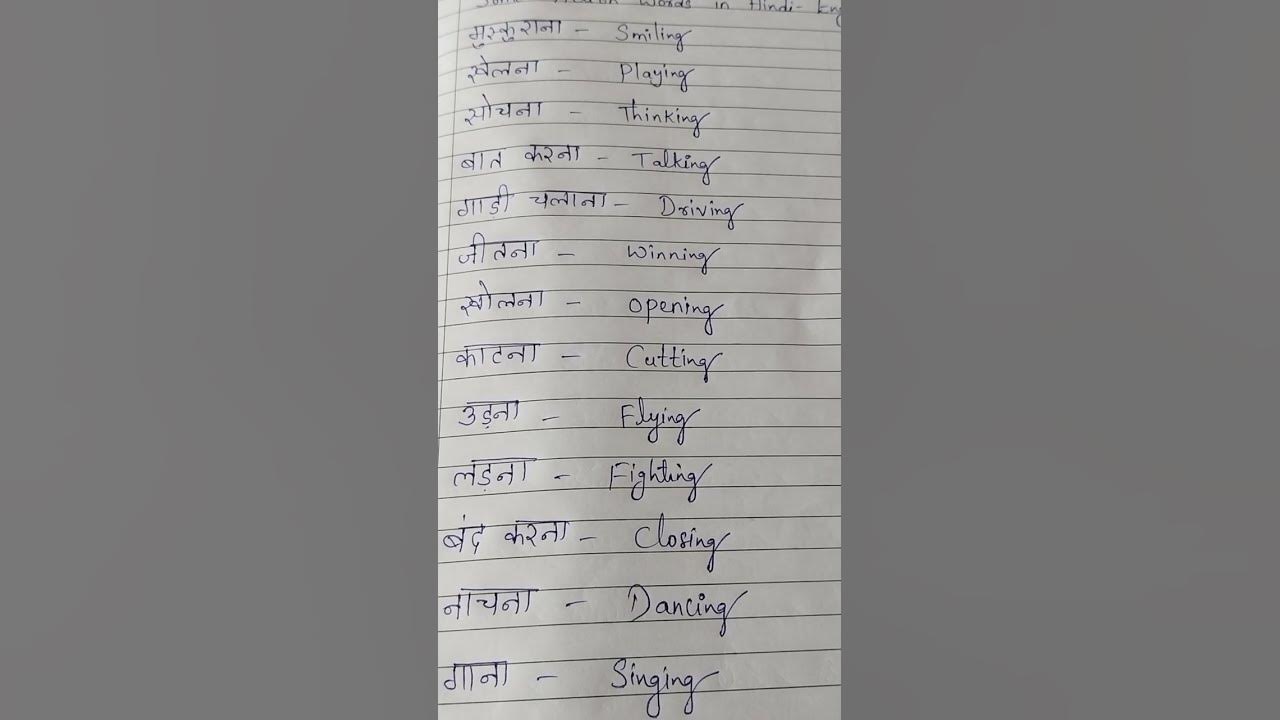 Words in Hindi- Eng
मुस्कुराना - Smiling
खेलना - Playing
सोचना - Thinking
बात करना - Talking
गाड़ी चलाना - Driving
जीतना - Winning
खोलना - Opening
काटना - Cutting
उड़ना - Flying
लड़ना - Fighting
बंद करना - Closing
नाचना - Dancing
गाना - Singing